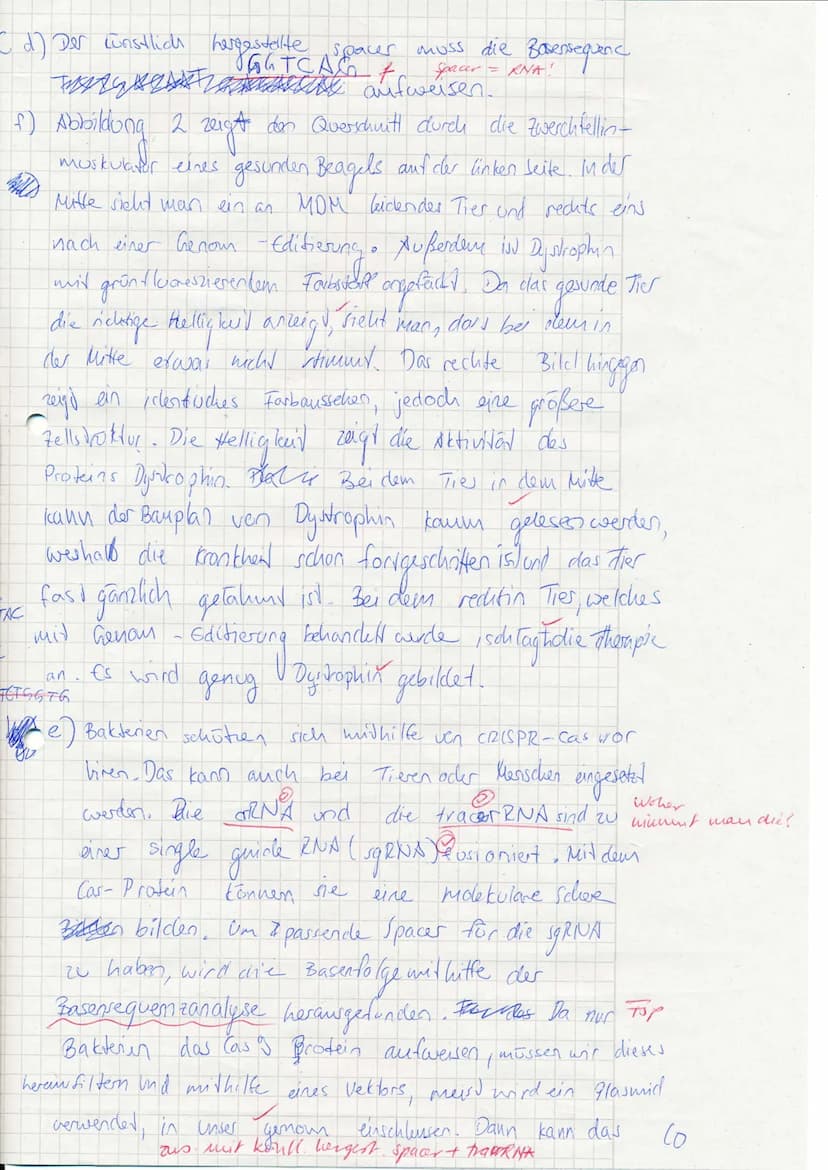 d) Der künstlich hergestellte spacer muss die Basensequenz
GGTCAG f spacer = RNA!
aufweisen.
f) Abbildung 2 zeigt den Querschnitt durch die Zwerchfellin-
muskulatur eines gesunden Beagels auf der linken Seite. In der
Mitte sieht man ein an MDM leidendes Tier und rechts eins
nach einer Genom-Editierung. Außerdem ist Dystrophin
mit grünfluoreszierendem Farbstoff angefärbt. Da das gesunde Tier
die richtige Helligkeit anzeigt, sieht man, dass bei dem in
der Mitte etwas nicht stimmt. Das rechte Bild hingegen
zeigt ein identisches Farbaussehen, jedoch eine größere
Zellstruktur. Die Helligkeit zeigt die Aktivität des
Proteins Dystrophin. Bei dem Tier in dem Mitte
kann der Bauplan von Dystrophin kaum gelesen werden,
weshalb die Krankheit schon fortgeschritten ist und das Tier
fast gänzlich gelähmt ist. Bei dem rechten Tier, welches
TAC
mit Genom-Editierung behandelt wurde, schlägt die Therapie
an. Es wird genug Dystrophin gebildet.
e) Bakterien schützen sich mithilfe von CRISPR-Cas vor
Viren. Das kann auch bei Tieren oder Menschen eingesetzt
werden. Die crRNA und die tracrRNA sind zu
woher nimmt man die?
einer single guide RNA (sgRNA) fusioniert. Mit dem
Cas-Protein können sie eine molekulare Schere
bilden. Um passende Spacer für die sgRNA
zu haben, wird die Basenfolge mithilfe der
Basensequenzanalyse herausgefunden. Da nur Top
Bakterien das Cas9 Protein aufweisen, müssen wir dieses
herausfiltern und mithilfe eines Vektors, meist wird ein Plasmid
verwendet, in unser Genom einschleusen. Dann kann das
aus mit künstl. hergest. spacer + tracrRNA